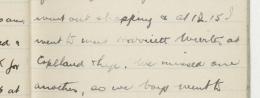 came went out shopping & at 12.15 I
went to meet Harriett Write, at
Copeland & Lye. We missed one
another, so we boys went to